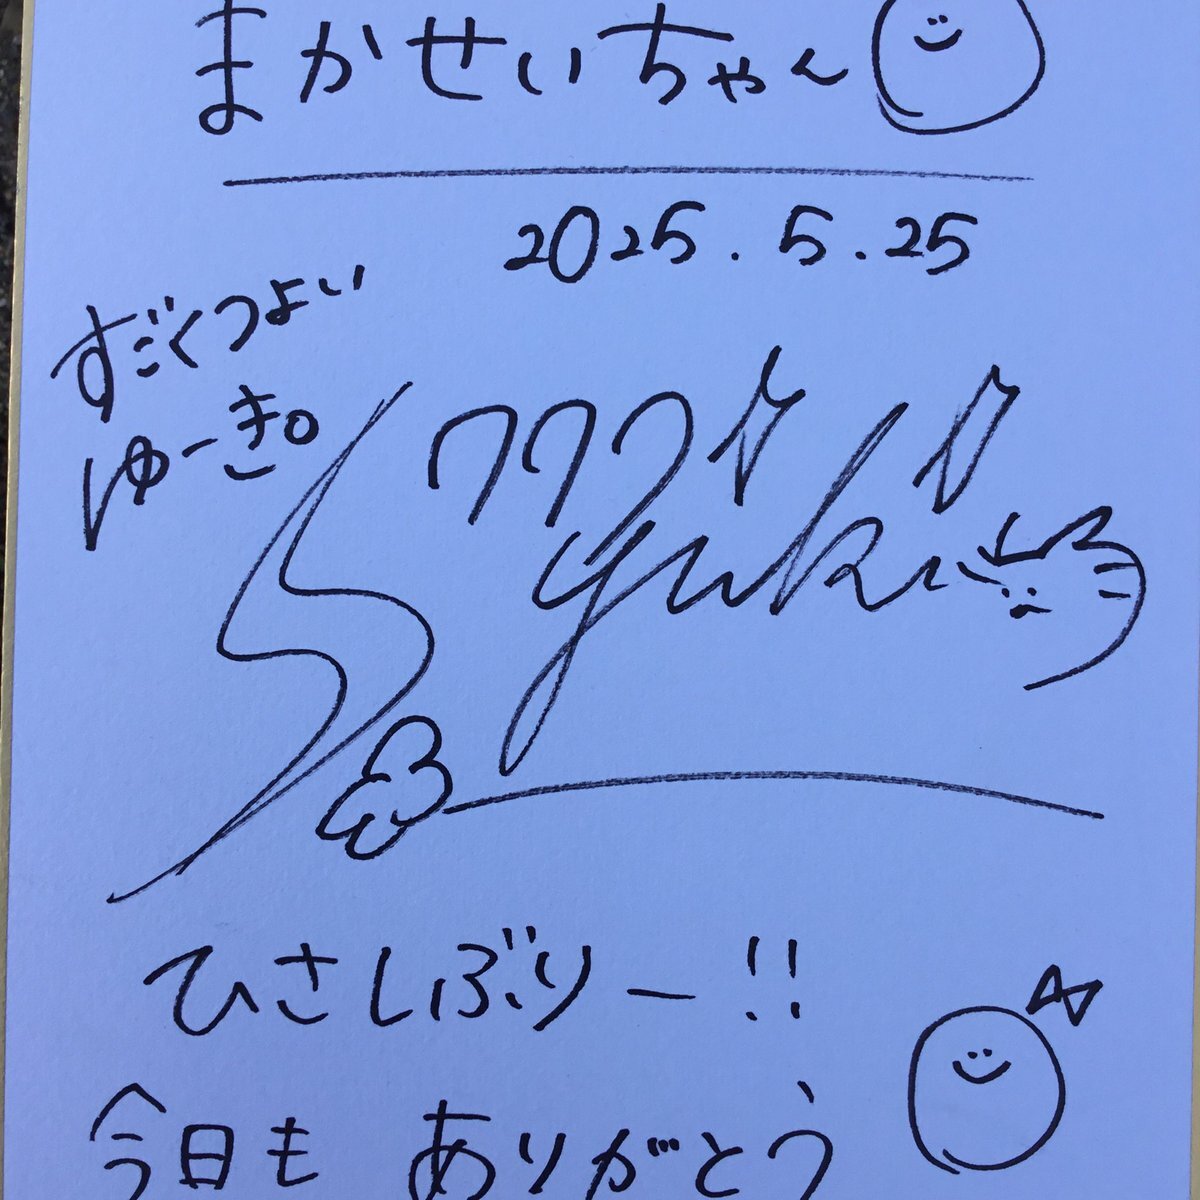 まかせいちゃん
2025.5.25
すごくつよい
ゆーき。
yuki
ひさしぶりー!!
今日も ありがとう